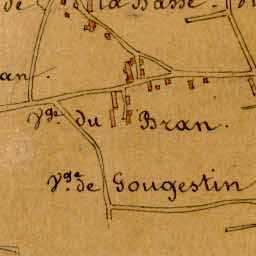 de la Basse
an
Vge du Bran.
Vge de Gougestin